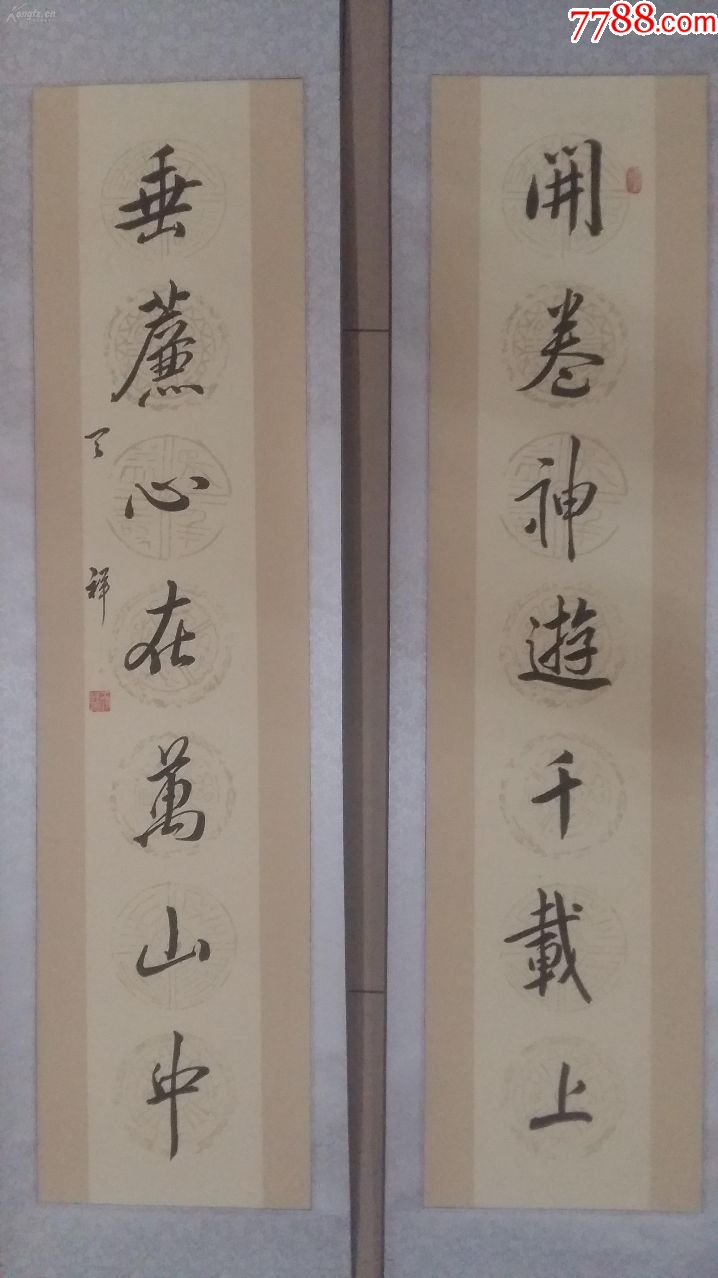 7788.com
Kongfz.cn
開卷神遊千載上
垂簾心在萬山中
天祥